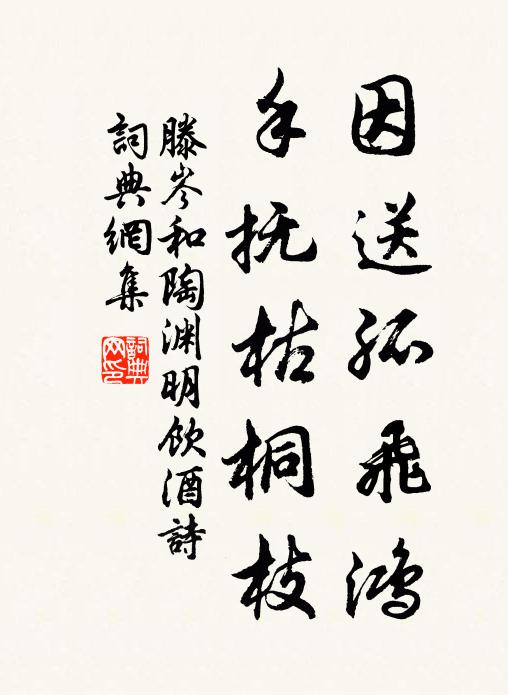 因送孤飛鴻
手抚枯桐枝
滕岑和陶渊明飲酒詩
詞典網集
詞典
网印